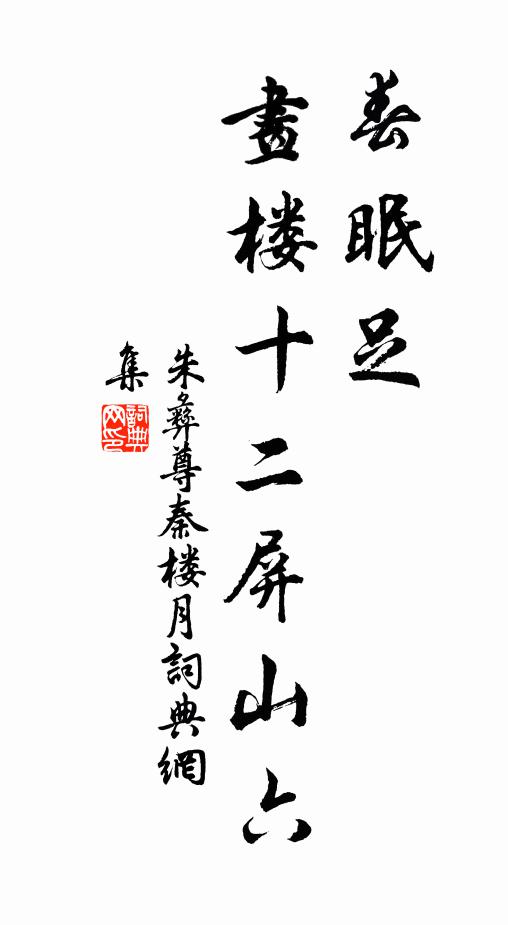 春眠足
畫楼十二屏山六
朱彝尊秦楼月詞典網
集
詞典网印